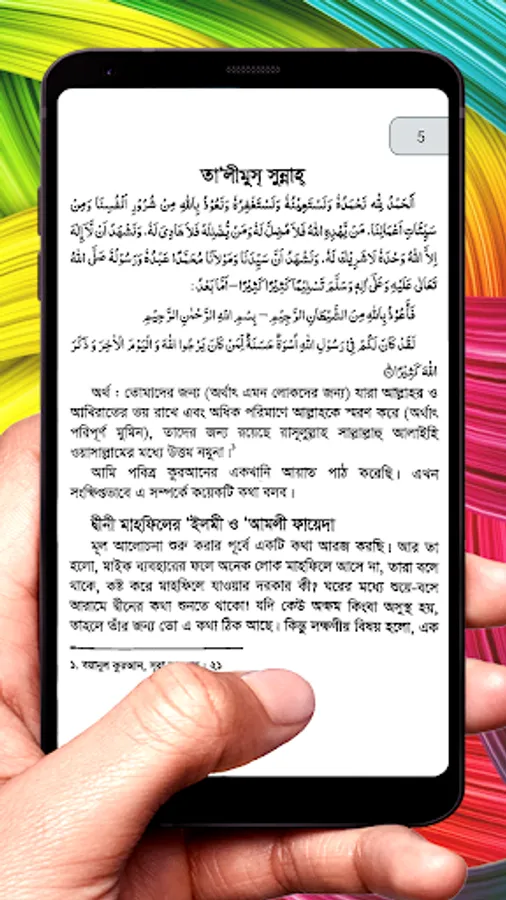 5
তা'লীমুস্ সুন্নাহ্
اَلْحَمْدُ لِلّٰهِ نَحْمَدُهٗ وَنَسْتَعِيْنُهٗ وَنَسْتَغْفِرُهٗ وَنَعُوْذُ بِاللّٰهِ مِنْ شُرُوْرِ اَنْفُسِنَا وَمِنْ
سَيِّئَاتِ اَعْمَالِنَا. مَنْ يَّهْدِهِ اللّٰهُ فَلَا مُضِلَّ لَهٗ وَمَنْ يُّضْلِلْهُ فَلَا هَادِىَ لَهٗ. وَنَشْهَدُ اَنْ لَّا اِلٰهَ
اِلَّا اللّٰهُ وَحْدَهٗ لَا شَرِيْكَ لَهٗ. وَنَشْهَدُ اَنَّ سَيِّدَنَا وَمَوْلَانَا مُحَمَّدًا عَبْدُهٗ وَرَسُوْلُهٗ صَلَّى اللّٰهُ
تَعَالٰى عَلَيْهِ وَعَلٰى اٰلِهٖ وَسَلَّمَ تَسْلِيْمًا كَثِيْرًا كَثِيْرًا – اَمَّا بَعْدُ :
فَاَعُوْذُ بِاللّٰهِ مِنَ الشَّيْطَانِ الرَّجِيْمِ – بِسْمِ اللّٰهِ الرَّحْمٰنِ الرَّحِيْمِ
لَقَدْ كَانَ لَكُمْ فِيْ رَسُوْلِ اللّٰهِ اُسْوَةٌ حَسَنَةٌ لِّمَنْ كَانَ يَرْجُوا اللّٰهَ وَ الْيَوْمَ الْاٰخِرَ وَ ذَكَرَ
اللّٰهَ كَثِيْرًا
অর্থ : তোমাদের জন্য (অর্থাৎ এমন লোকদের জন্য) যারা আল্লাহর ও
আখিরাতের ভয় রাখে এবং অধিক পরিমাণে আল্লাহকে স্মরণ করে (অর্থাৎ
পরিপূর্ণ মুমিন), তাদের জন্য রয়েছে রাসূলুল্লাহ সাল্লাল্লাহু আলাইহি
ওয়াসাল্লামের মধ্যে উত্তম নমুনা।১
আমি পবিত্র কুরআনের একখানি আয়াত পাঠ করেছি। এখন
সংক্ষিপ্তভাবে এ সম্পর্কে কয়েকটি কথা বলব।
দ্বীনী মাহফিলের 'ইলমী ও 'আমলী ফায়েদা
মূল আলোচনা শুরু করার পূর্বে একটি কথা আরজ করছি। আর তা
হলো, মাইক ব্যবহারের ফলে অনেক লোক মাহফিলে আসে না, তারা বলে
থাকে, কষ্ট করে মাহফিলে যাওয়ার দরকার কী? ঘরের মধ্যে শুয়ে-বসে
আরামে দ্বীনের কথা শুনতে থাকো! যদি কেউ অক্ষম কিংবা অসুস্থ হয়,
তাহলে তাঁর জন্য তো এ কথা ঠিক আছে। কিন্তু লক্ষণীয় বিষয় হলো, এক
১. বয়ানুল কুরআন, সূরা : ২১